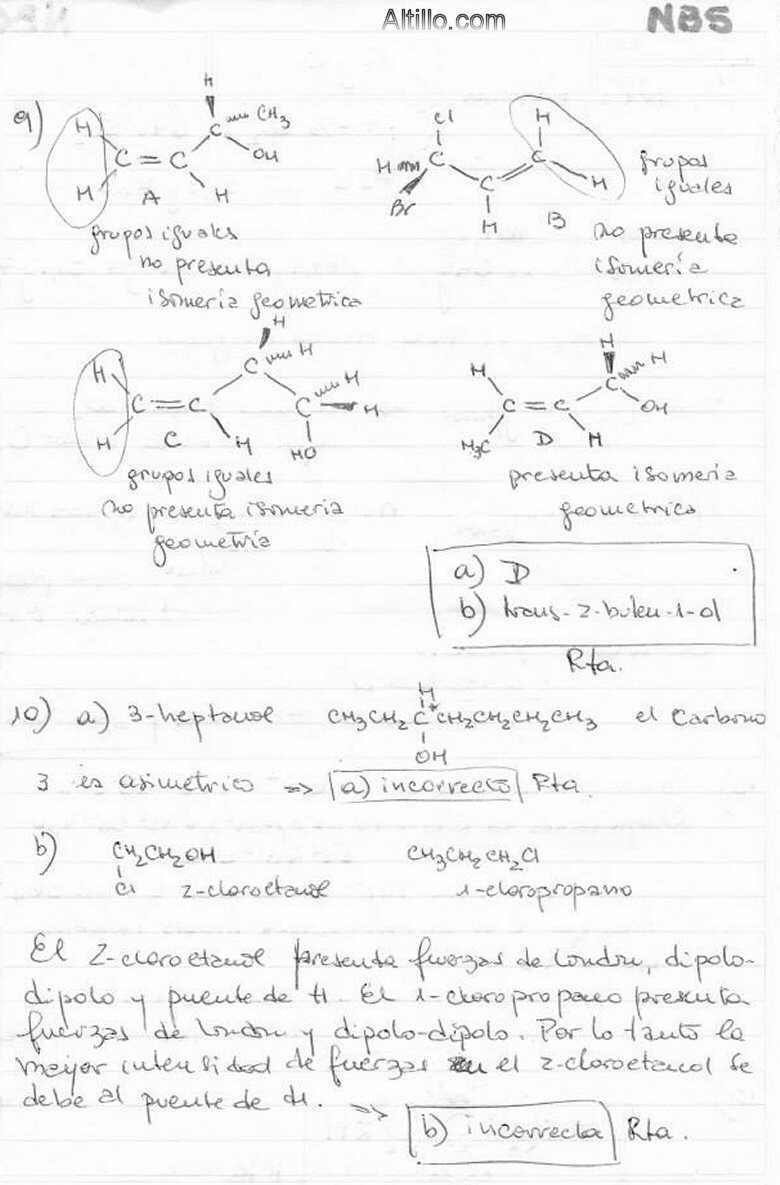 Altillo.com
NBS
9)
H
H
C = C
H
C
H
CH3
OH
A
grupos iguales
no presenta
isomería geometrica
Cl
H
C
Br
C
H
C
H
H
B
grupos
iguales
no presenta
isomería
geometrica
H
H
C = C
H
C
H
H
C
H
H
HO
C
grupos iguales
no presenta isomeria
geometria
H
H3C
C = C
H
C
H
H
OH
D
presenta isomeria
geometrica
a) D
b) trans-2-buten-1-ol
Rta.
H
10) a) 3-heptanol CH3CH2C*CH2CH2CH2CH3 el carbono
OH
3 es asimetrico => a) incorrecto Rta.
b) CH2CH2OH CH3CH2CH2Cl
Cl 2-cloroetanol 1-cloropropano
El 2-cloroetanol presenta fuerzas de London, dipolo-
dipolo y puente de H. El 1-cloropropano presenta
fuerzas de London y dipolo-dipolo. Por lo tanto la
mayor intensidad de fuerzas en el 2-cloroetanol se
debe al puente de H. => b) incorrecta Rta.